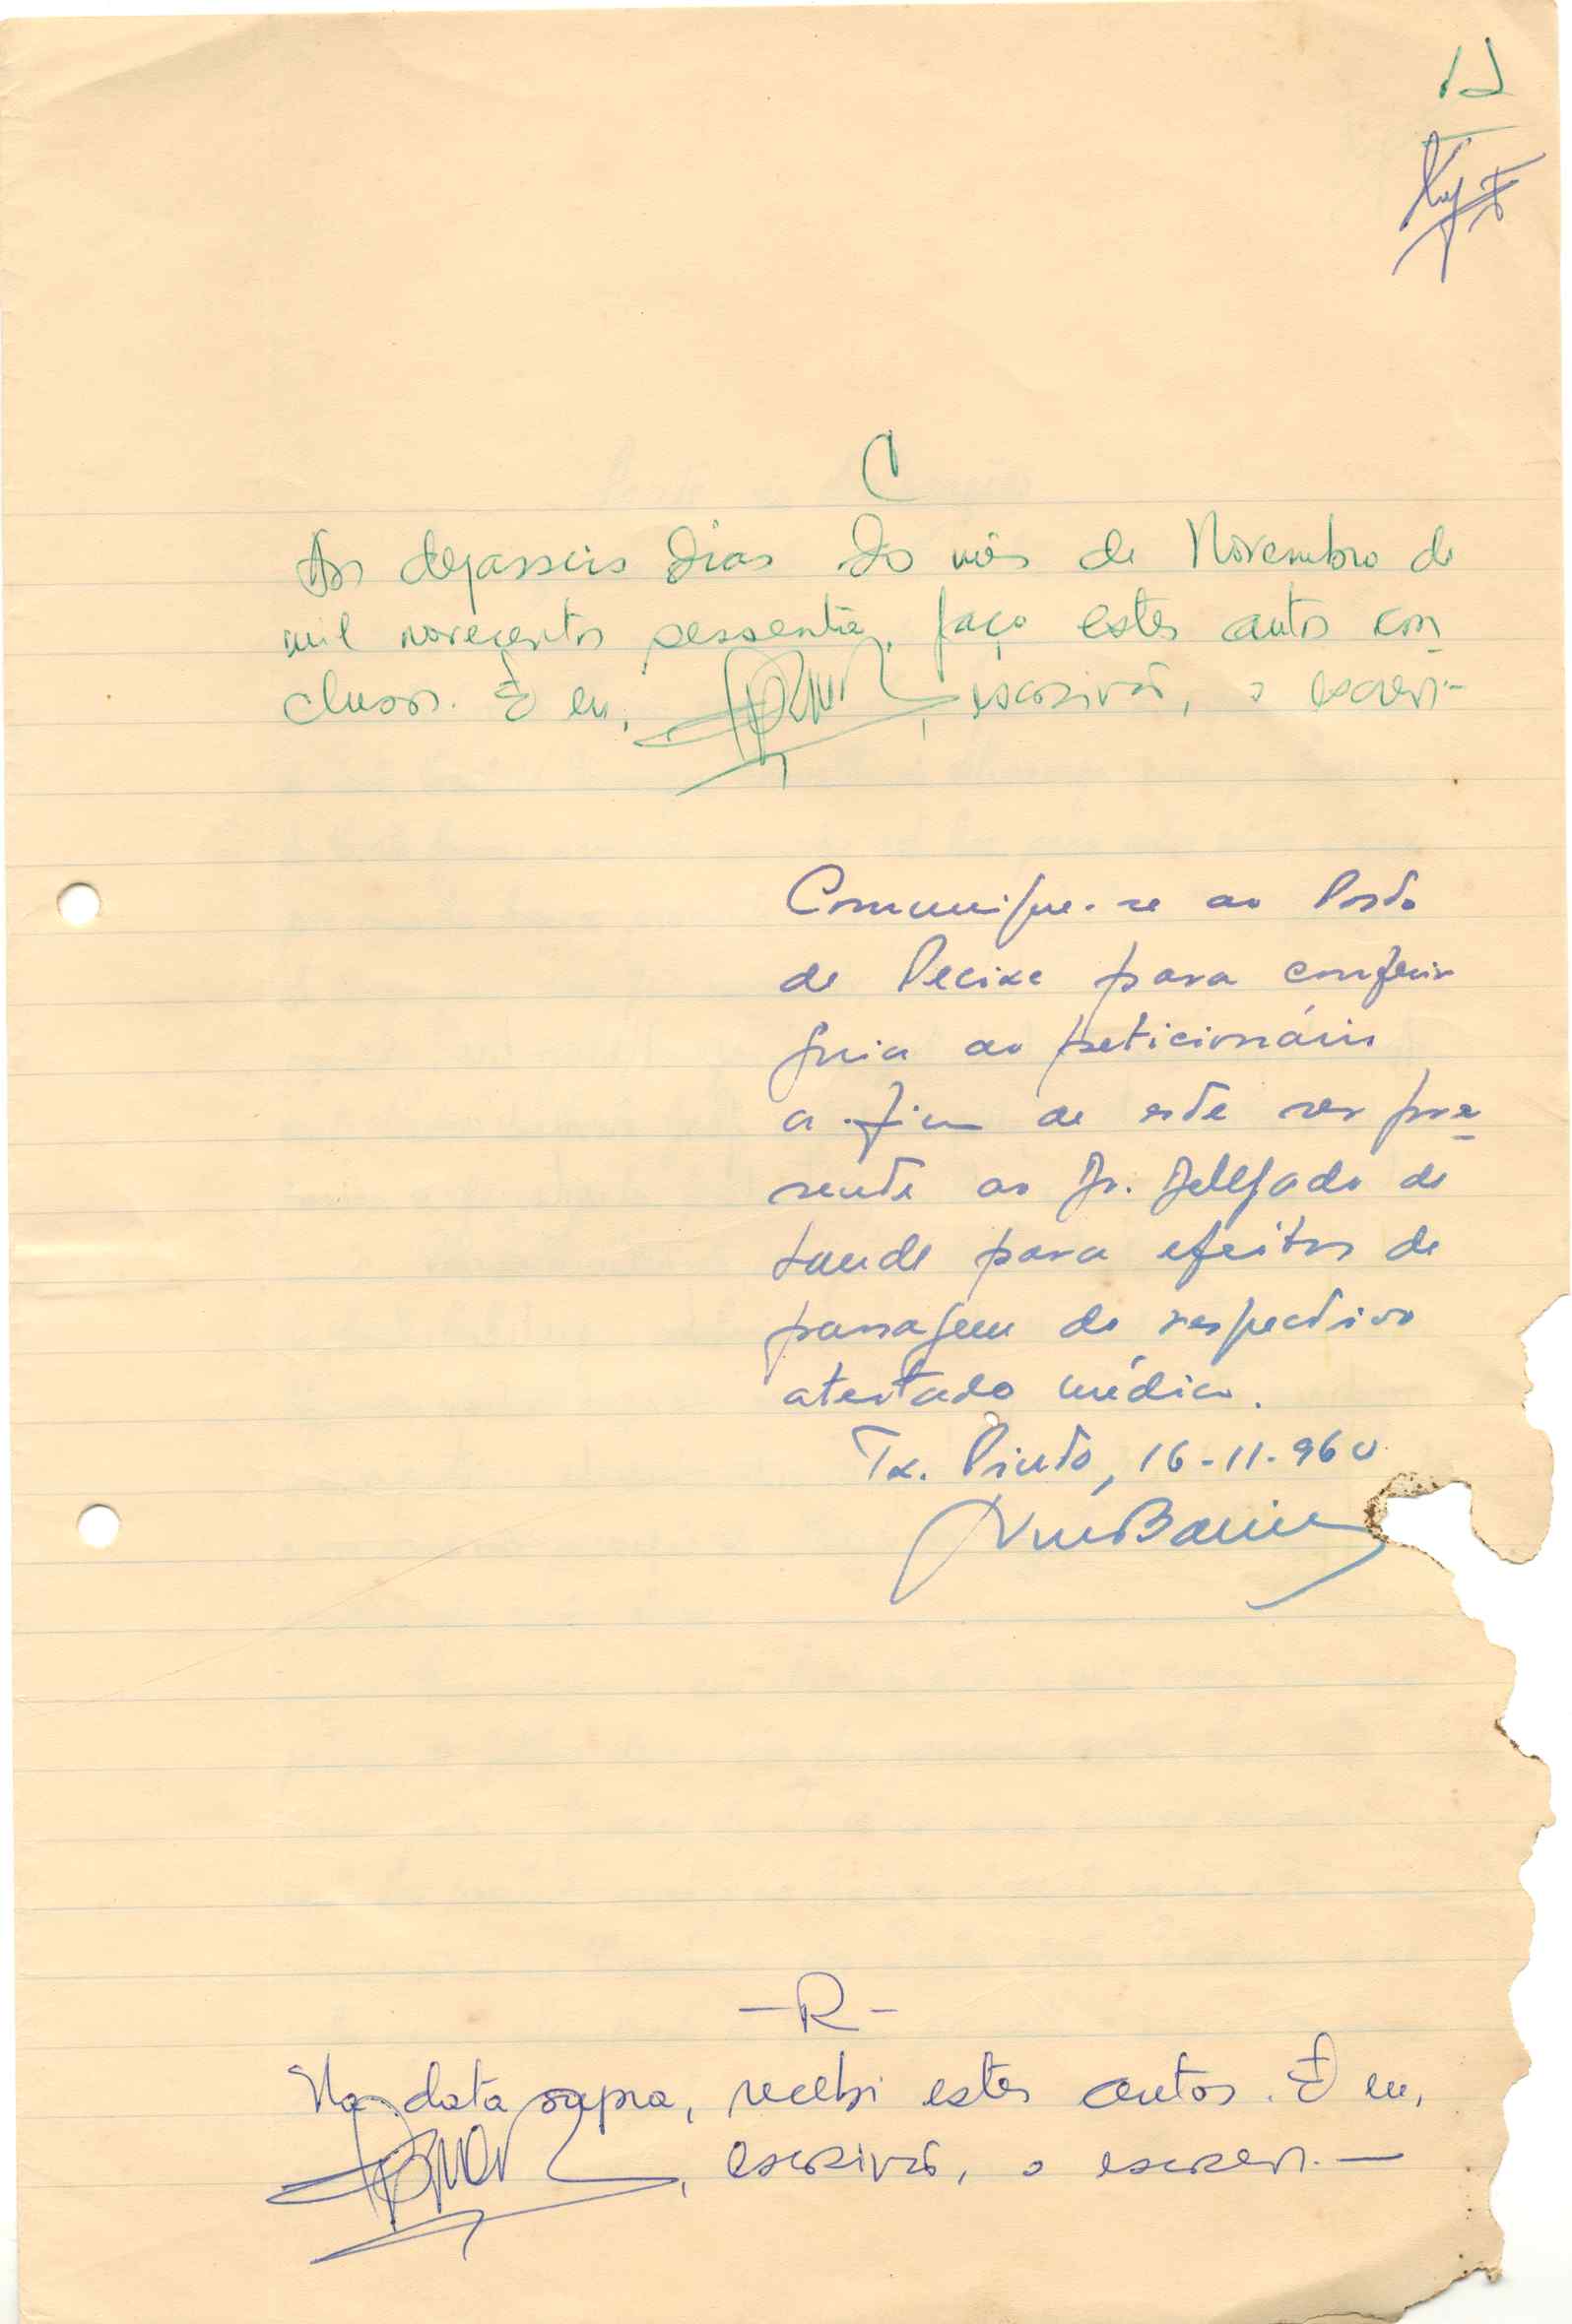 12
C
Aos dezasseis dias do mês de Novembro de
mil novecentos sessenta, faço estes autos con-
clusos. E eu, , escrivão, o escrevi-
Comunique-se ao Posto
de Pecixe para conferir
guia ao peticionário
a fim de este ser pre-
sente ao Dr. Delegado de
Saude para efeitos de
passagem do respectivo
atestado médico.
Tx. Pinto, 16-11-960
-R-
Na data supra, recebi estes autos. E eu,
, escrivão, o escrevi.-